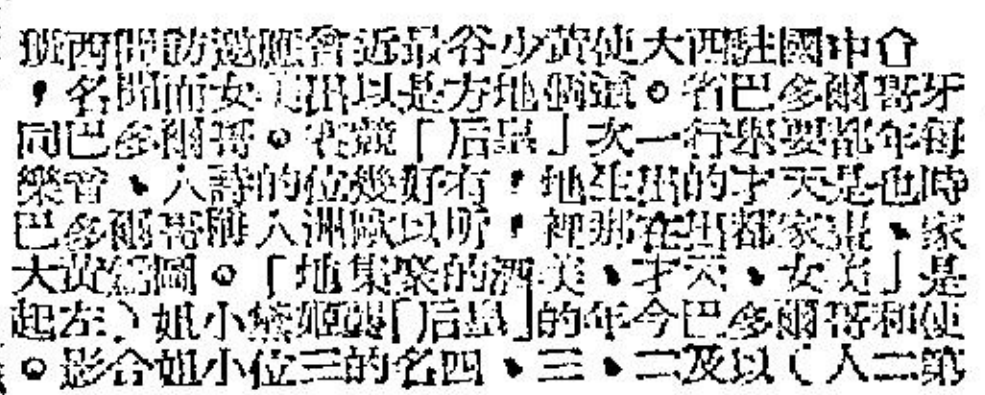 中國駐西大使黃少谷最近曾應邀訪問西班
牙哥爾多巴省。這個地方是以出美女而聞名，
每年都要舉行一次「皇后」競選。哥爾多巴同
時也是天才的出生地，有好幾位的詩人、音樂
家、畫家都出在那裡，所以歐洲人稱哥爾多巴
是「美女、天才、美酒的聚集地」。圖為黃大
使和哥爾多巴今年的「皇后」姬黛小姐（左起
第二人）以及二、三、四名的三位小姐合影。